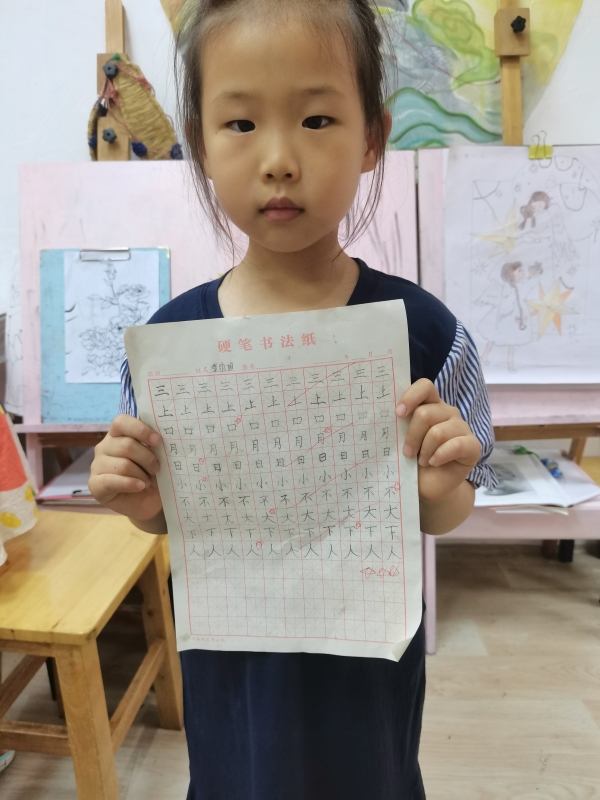 硬笔书法纸
三三三三三三三三三三三
上上上上上上上上上上上
口口口口口口口口口口口
月月月月月月月月月月月
日日日日日日日日日日日
小小小小小小小小小小小
不不不不不不不不不不不
大大大大大大大大大大大
下下下下下下下下下下下
人人人人人人人人人人人